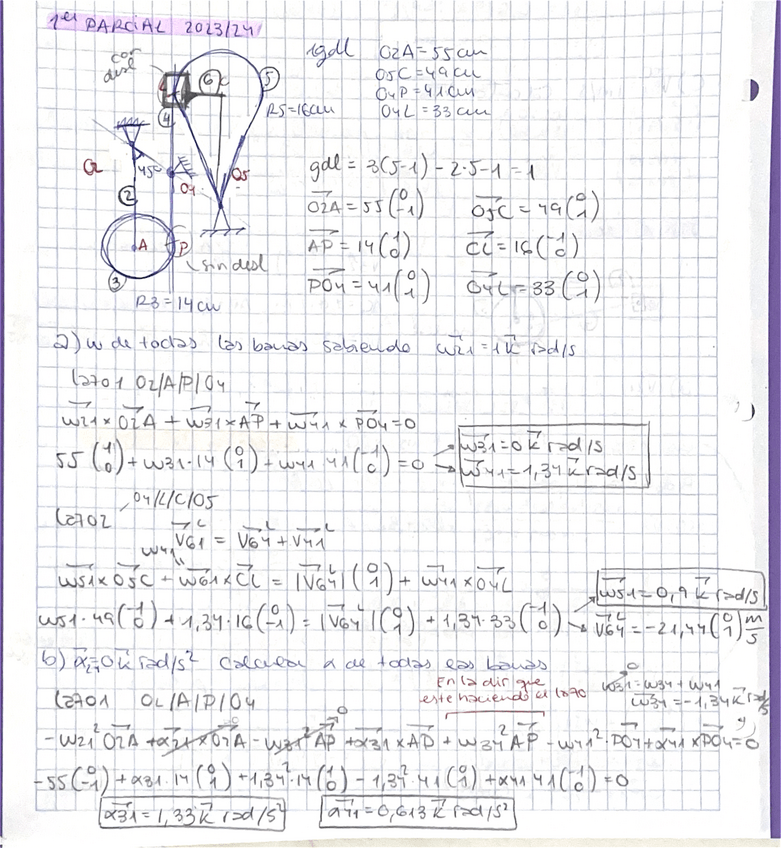 1er PARCIAL 2023/24
con desl
1gdl
O2A = 55 cm
O5C = 49 cm
O4P = 41 cm
O4L = 33 cm
6
C
5
4
R5 = 16 cm
45°
O5
2
A
P
sin desl
3
R3 = 14 cm
gdl = 3(5-1) - 2·5 - 1 = 1
O2A = 55 (0 -1)
O5C = 49 (0 1)
AP = 14 (1 0)
CL = 16 (-1 0)
PO4 = 41 (0 1)
O4L = 33 (0 1)
a) w de todas las barras sabiendo w21 = 1 k rad/s
Lazo 1 O2/A/P/O4
w21 × O2A + w31 × AP + w41 × PO4 = 0
55 (1 0) + w31·14 (0 1) + w41·41 (-1 0) = 0
w31 = 0 k rad/s
w41 = 1,34 k rad/s
Lazo 2, O4/L/C/O5
V61^L = V64^L + V41^L
w41
w51 × O5C + w61 × CL = |V64^L| (0 1) + w41 × O4L
w51·49 (-1 0) + 1,34·16 (0 -1) = |V64^L| (0 1) + 1,34·33 (-1 0)
w51 = 0,9 k rad/s
V64^L = -21,44 (0 1) m/s
b) α21 = 0 k rad/s² calcular α de todas las barras
En la dir que este haciendo el lazo
w31 = w34 + w41
w34 = -1,34 k rad/s
Lazo 1 O2/A/P/O4
-w21² O2A + α21 × O2A - w31² AP + α31 × AP + w34² AP - w41²·PO4 + α41 × PO4 = 0
-55 (0 -1) + α31·14 (0 1) + 1,34²·14 (1 0) - 1,34²·41 (0 1) + α41 41 (-1 0) = 0
α31 = 1,33 k rad/s²
α41 = 0,613 k rad/s²